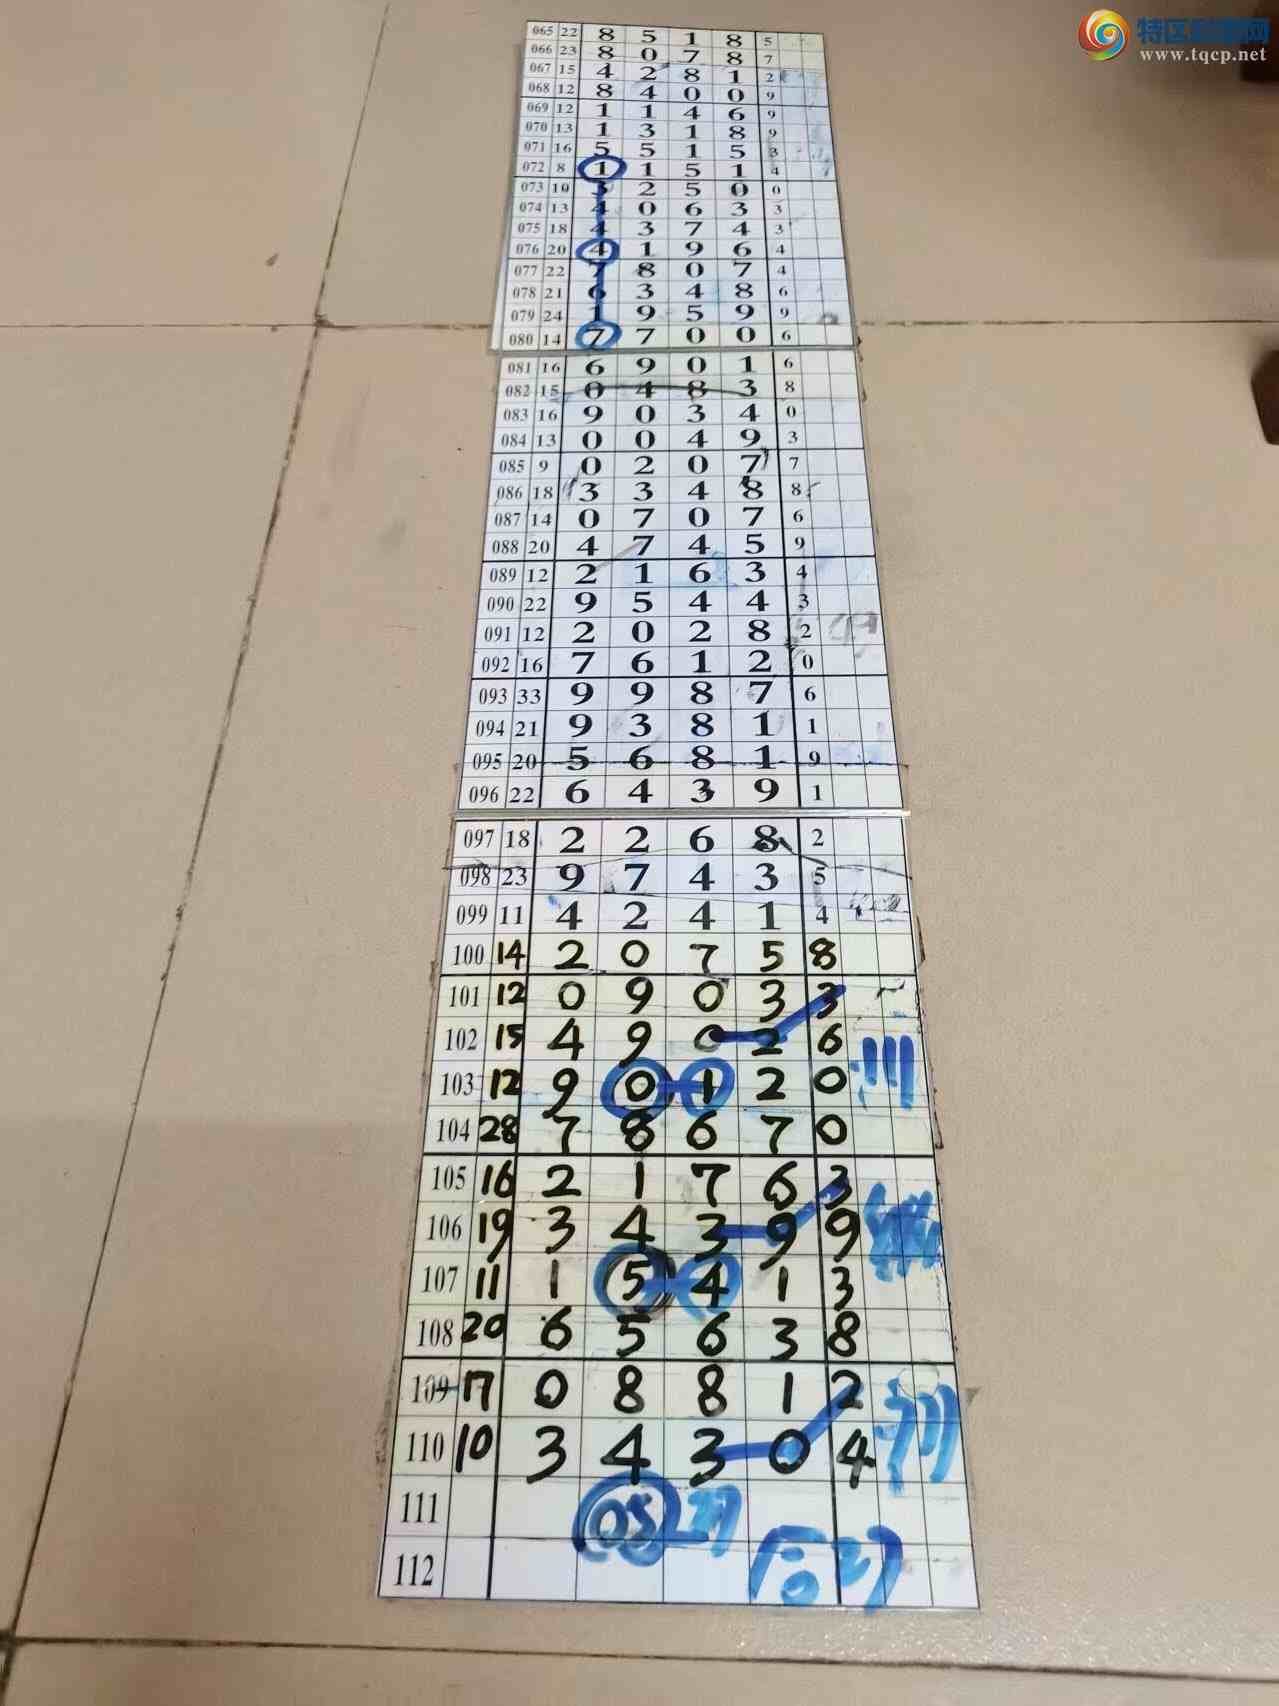 特区彩票网
www.tqcp.net
065 22 8 5 1 8 5
066 23 8 0 7 8 7
067 15 4 2 8 1 2
068 12 8 4 0 0 9
069 12 1 1 4 6 9
070 13 1 3 1 8 9
071 16 5 5 1 5 3
072 8 1 1 5 1 4
073 10 3 2 5 0 0
074 13 4 0 6 3 3
075 18 4 3 7 4 3
076 20 4 1 9 6 4
077 22 7 8 0 7 4
078 21 6 3 4 8 6
079 24 1 9 5 9 9
080 14 7 7 0 0 6
081 16 6 9 0 1 6
082 15 0 4 8 3 8
083 16 9 0 3 4 0
084 13 0 0 4 9 3
085 9 0 2 0 7 7
086 18 3 3 4 8 8
087 14 0 7 0 7 6
088 20 4 7 4 5 9
089 12 2 1 6 3 4
090 22 9 5 4 4 3
091 12 2 0 2 8 2
092 16 7 6 1 2 0
093 33 9 9 8 7 6
094 21 9 3 8 1 1
095 20 5 6 8 1 9
096 22 6 4 3 9 1
097 18 2 2 6 8 2
098 23 9 7 4 3 5
099 11 4 2 4 1 4
100 14 2 0 7 5 8
101 12 0 9 0 3 3
102 15 4 9 0 2 6
103 12 9 0 1 2 0
104 28 7 8 6 7 0
105 16 2 1 7 6 3
106 19 3 4 3 9 9
107 11 1 5 4 1 3
108 20 6 5 6 3 8
109 17 0 8 8 1 2
110 10 3 4 3 0 4
111 05
112